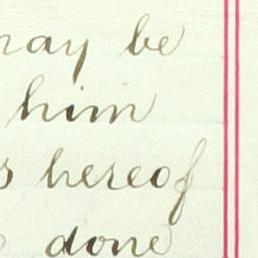 may be
him
s hereof
done